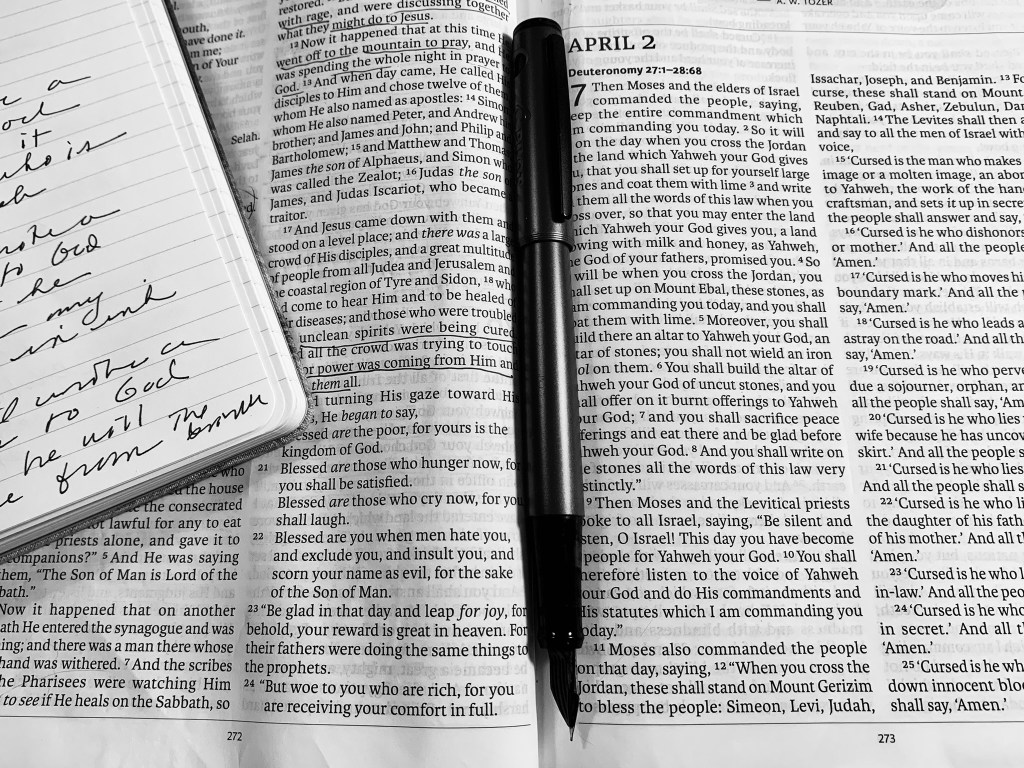 a
it
who is
a
to God
he
my
in
to God
he will the
from
outh,
have done it.
m me;
n of Your
Selah.
d.
who
the house
the consecrated
lawful for any to eat
priests alone, and gave it to
companions?” 5 And He was saying
them, “The Son of Man is Lord of the
bath.”
Now it happened that on another
ath He entered the synagogue and was
ing; and there was a man there whose
hand was withered. 7 And the scribes
he Pharisees were watching Him
to see if He heals on the Sabbath, so
272
restored.
with rage, and were discussing together
what they might do to Jesus.
12 Now it happened that at this time
went off to the mountain to pray, and
was spending the whole night in prayer
God. 13 And when day came, He called
disciples to Him and chose twelve of them
whom He also named as apostles: 14 Simo
whom He also named Peter, and Andrew
brother; and James and John; and Philip an
Bartholomew; 15 and Matthew and Thoma
James the son of Alphaeus, and Simon wh
was called the Zealot; 16 Judas the son
James, and Judas Iscariot, who became
traitor.
17 And Jesus came down with them an
stood on a level place; and there was a larg
crowd of His disciples, and a great multitud
of people from all Judea and Jerusalem an
he coastal region of Tyre and Sidon, 18 wh
d come to hear Him and to be healed o
r diseases; and those who were trouble
unclean spirits were being cured
all the crowd was trying to touch
or power was coming from Him an
them all.
turning His gaze toward Hi
, He began to say,
essed are the poor, for yours is the
kingdom of God.
21 Blessed are those who hunger now, for
you shall be satisfied.
Blessed are those who cry now, for you
shall laugh.
22 Blessed are you when men hate you,
and exclude you, and insult you, and
scorn your name as evil, for the sake
of the Son of Man.
23 “Be glad in that day and leap for joy, for
behold, your reward is great in heaven. For
their fathers were doing the same things to
the prophets.
24 “But woe to you who are rich, for you
are receiving your comfort in full.
A. W. TOZER
APRIL 2
Deuteronomy 27:1–28:68
7 Then Moses and the elders of Israel
commanded the people, saying,
eep the entire commandment which
m commanding you today. 2 So it will
on the day when you cross the Jordan
the land which Yahweh your God gives
u, that you shall set up for yourself large
ones and coat them with lime 3 and write
them all the words of this law when you
oss over, so that you may enter the land
hich Yahweh your God gives you, a land
owing with milk and honey, as Yahweh,
he God of your fathers, promised you. 4 So
will be when you cross the Jordan, you
all set up on Mount Ebal, these stones, as
am commanding you today, and you shall
oat them with lime. 5 Moreover, you shall
uild there an altar to Yahweh your God, an
tar of stones; you shall not wield an iron
ol on them. 6 You shall build the altar of
ahweh your God of uncut stones, and you
all offer on it burnt offerings to Yahweh
our God; 7 and you shall sacrifice peace
fferings and eat there and be glad before
ahweh your God. 8 And you shall write on
e stones all the words of this law very
stinctly.”
9 Then Moses and the Levitical priests
oke to all Israel, saying, “Be silent and
sten, O Israel! This day you have become
people for Yahweh your God. 10 You shall
herefore listen to the voice of Yahweh
our God and do His commandments and
His statutes which I am commanding you
oday.”
11 Moses also commanded the people
on that day, saying, 12 “When you cross the
Jordan, these shall stand on Mount Gerizim
to bless the people: Simeon, Levi, Judah,
Issachar, Joseph, and Benjamin. 13 Fo
curse, these shall stand on Mount
Reuben, Gad, Asher, Zebulun, Dan
Naphtali. 14 The Levites shall then a
and say to all the men of Israel with
voice,
15 ‘Cursed is the man who makes
image or a molten image, an abor
to Yahweh, the work of the hand
craftsman, and sets it up in secre
the people shall answer and say,
16 ‘Cursed is he who dishonors
or mother.’ And all the people
‘Amen.’
17 ‘Cursed is he who moves hi
boundary mark.’ And all the
say, ‘Amen.’
18 ‘Cursed is he who leads a
astray on the road.’ And all th
say, ‘Amen.’
19 ‘Cursed is he who perve
due a sojourner, orphan, an
all the people shall say, ‘Am
20 ‘Cursed is he who lies
wife because he has uncov
skirt.’ And all the people s
21 ‘Cursed is he who lies
And all the people shall s
22 ‘Cursed is he who li
the daughter of his fath
of his mother.’ And all th
‘Amen.’
23 ‘Cursed is he who l
in-law.’ And all the peo
24 ‘Cursed is he who
in secret.’ And all th
‘Amen.’
25 ‘Cursed is he wh
down innocent bloo
shall say, ‘Amen.’
273